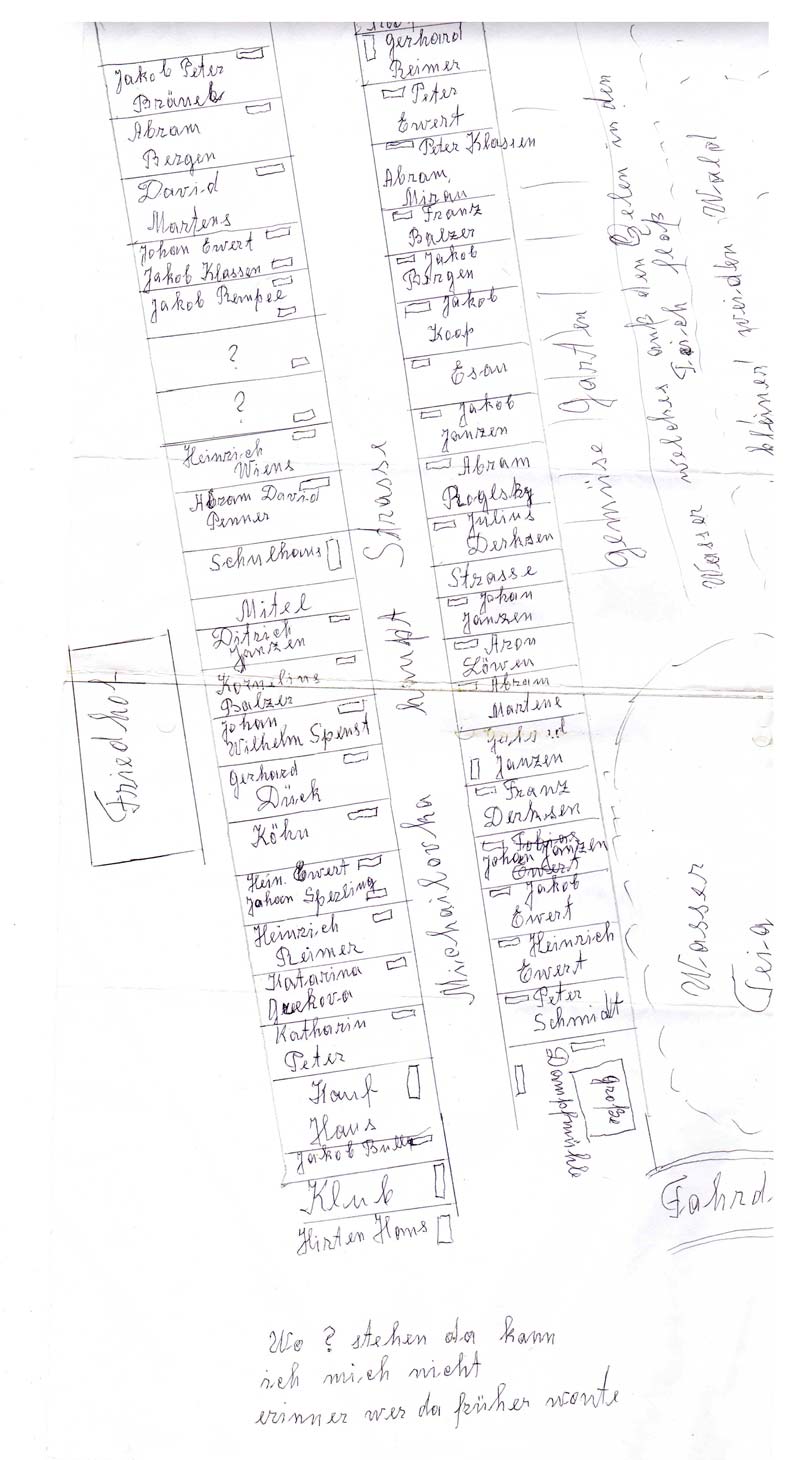 Jakob Peter
Bräul
Abram
Bergen
David
Martens
Johan Ewert
Jakob Klassen
Jakob Rempel
?
?
Heinrich
Wiens
Abram David
Penner
Schulhaus
Mitel
Ditrich
Janzen
Kornelius
Balzer
Johan
Wilhelm Spenst
Gerhard
Dück
Köhn
Hein. Ewert
Johan Sperling
Heinrich
Reimer
Katarina
Katharin
Peter
Kauf
Haus
Jakob
Klub
Hirten Haus
Friedhof
haupt Strasse
Michailovka
Gerhard
Reimer
Peter
Ewert
Peter Klassen
Abram,
Franz
Balzer
Jakob
Bergen
Jakob
Koop
Esau
Jakob
Janzen
Abram
Julius
Derksen
Strasse
Johan
Janzen
Aron
Löwen
Abram
Martens
Janzen
Franz
Derksen
Tobias
Johan Janzen
Ewert
Jakob
Ewert
Heinrich
Ewert
Peter
Schmidt
große
Dampfmühle
gemüse Garten
Wasser welches auß den in den
Teich floß
kleiner Wald
Wasser
Teia
Fahrd.
Wo ? stehen da kann
ich mich nicht
erinner wer da früher wonte